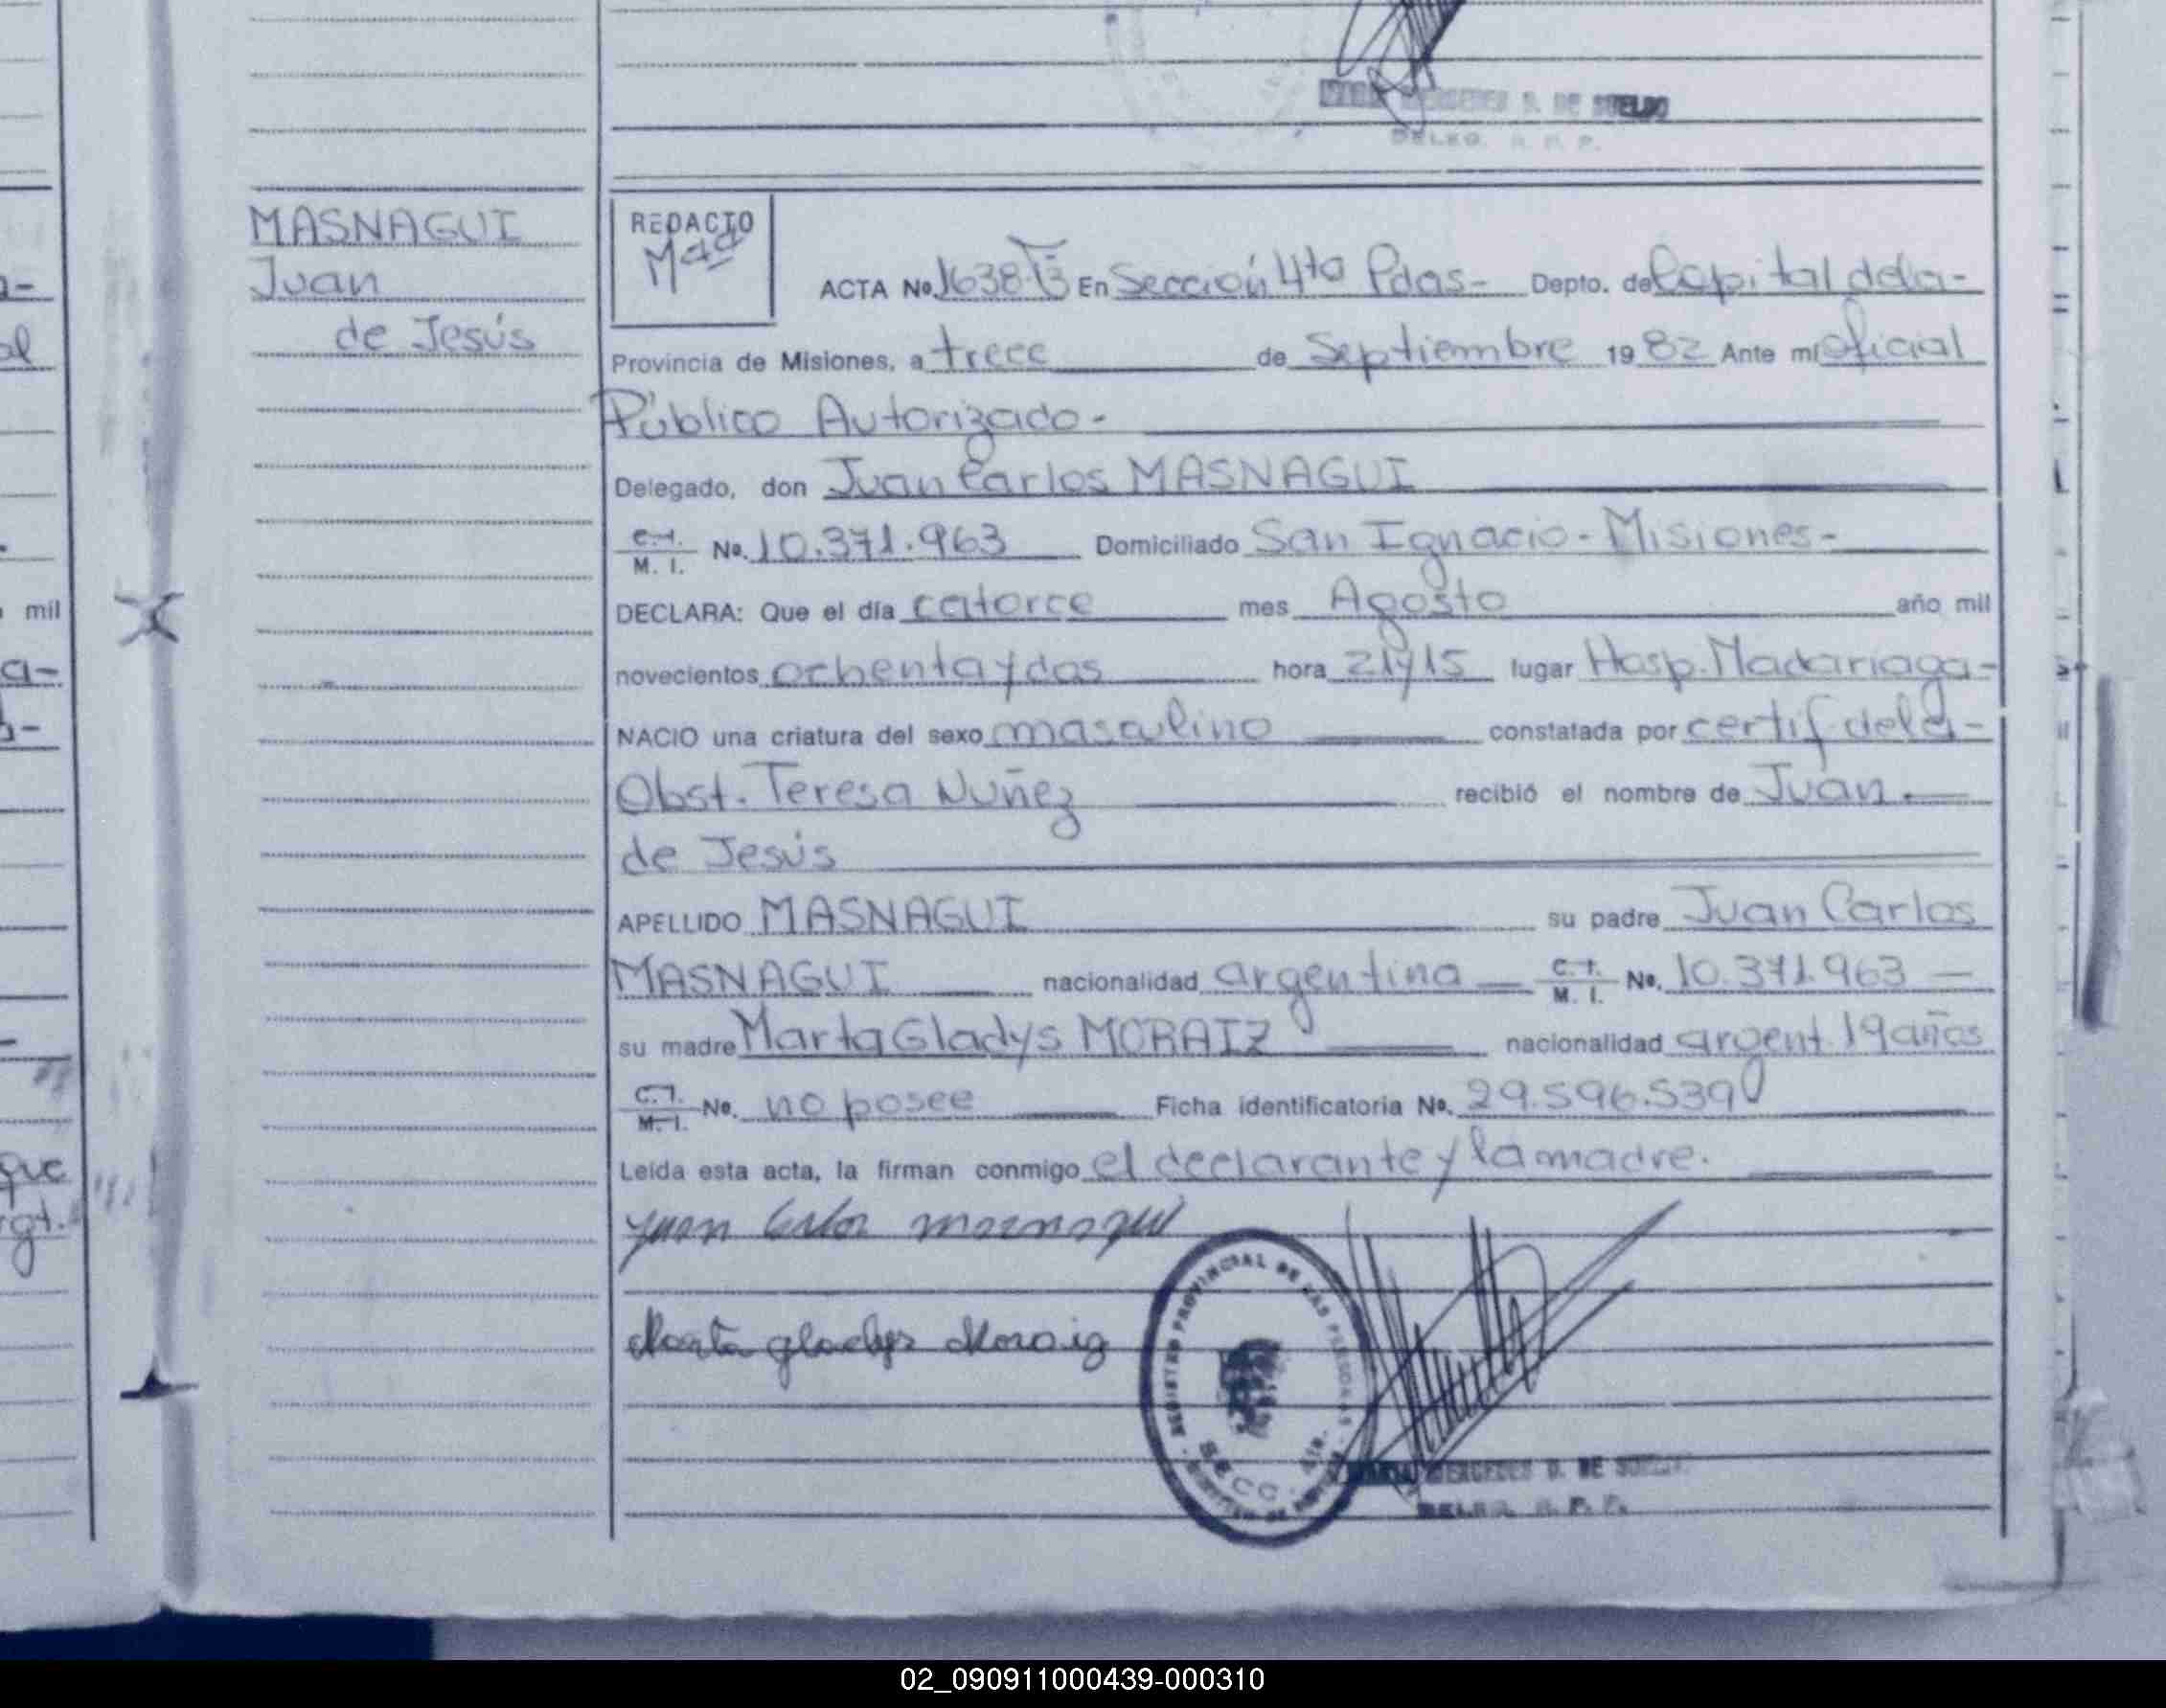 MERCEDES D. DE SUELDO
DELEG. R. P. P.
MASNAGUI
Juan
de Jesús
REDACTO
ACTA No. 1638 En Sección 4to Pdas- Depto. de Capital dela-
Provincia de Misiones, a trece de Septiembre 1982 Ante mi oficial
Público Autorizado-
Delegado, don Juan Carlos MASNAGUI
C.I. M. I. No. 10.371.963 Domiciliado San Ignacio-Misiones-
DECLARA: Que el día catorce mes Agosto año mil
novecientos ochenta y dos hora 21y15 lugar Hosp. Madariaga-
NACIO una criatura del sexo masculino constatada por certif-dela-
Obst. Teresa Nuñez recibió el nombre de Juan.
de Jesús
APELLIDO MASNAGUI su padre Juan Carlos
MASNAGUI nacionalidad argentina C.I. M. I. No. 10.371.963
su madre Marta Gladys MORAIZ nacionalidad argent. 19 años
C.I. M.I. No. no posee Ficha identificatoria No. 29.596.539
Leída esta acta, la firman conmigo el declarante y la madre.
Juan Carlos Masnagui
Marta gladys Moraiz
REGISTRO PROVINCIAL DE LAS PERSONAS
SECC. 4ta.
MERCEDES D. DE SUELDO
DELEG. R. P. P.
mil
a-
que
02_090911000439-000310